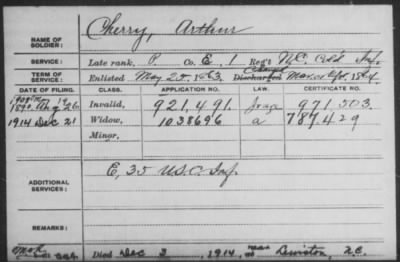 NAME OF SOLDIER: Cherry, Arthur
SERVICE: Late rank, P. Co. E, 1 Reg't N.C. Col'd Inf.
TERM OF SERVICE: Enlisted May 25, 1863, Discharged 1864.
DATE OF FILING. CLASS. APPLICATION NO. LAW. CERTIFICATE NO.
Aug 26 Invalid, 921,491. 971,503.
1914 Dec 21 Widow, 1038696 a 787429
Minor,
ADDITIONAL SERVICES: E, 35 U.S.C. Inf.
REMARKS:
Died Dec 3, 1914, near Lewiston, N.C.